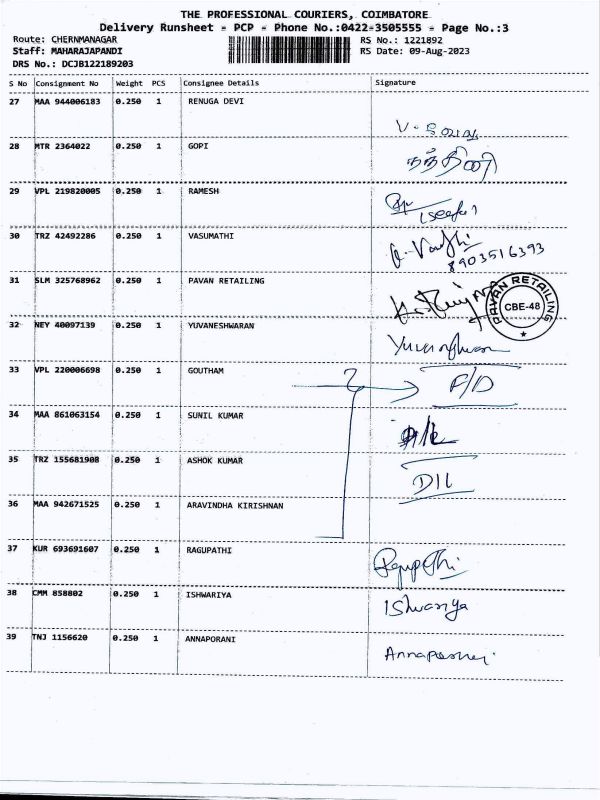 THE PROFESSIONAL COURIERS, COIMBATORE
Delivery Runsheet - PCP - Phone No.:0422-3505555 - Page No.:3
Route: CHERNMANAGAR RS No.: 1221892
Staff: MAHARAJAPANDI RS Date: 09-Aug-2023
DRS No.: DCJB122189203
S No Consignment No Weight PCS Consignee Details Signature
27 MAA 944006183 0.250 1 RENUGA DEVI
28 MTR 2364022 0.250 1 GOPI நந்தினி
29 VPL 219820005 0.250 1 RAMESH
30 TRZ 42492286 0.250 1 VASUMATHI
8903516393
31 SLM 325768962 0.250 1 PAVAN RETAILING
PAVAN RETAILING
CBE-48
32 NEY 40097139 0.250 1 YUVANESHWARAN
33 VPL 220006698 0.250 1 GOUTHAM F/D
34 MAA 861063154 0.250 1 SUNIL KUMAR
35 TRZ 155681908 0.250 1 ASHOK KUMAR D/L
36 MAA 942671525 0.250 1 ARAVINDHA KIRISHNAN
37 KUR 693691607 0.250 1 RAGUPATHI
38 CMM 858802 0.250 1 ISHWARIYA Ishwariya
39 TNJ 1156620 0.250 1 ANNAPORANI